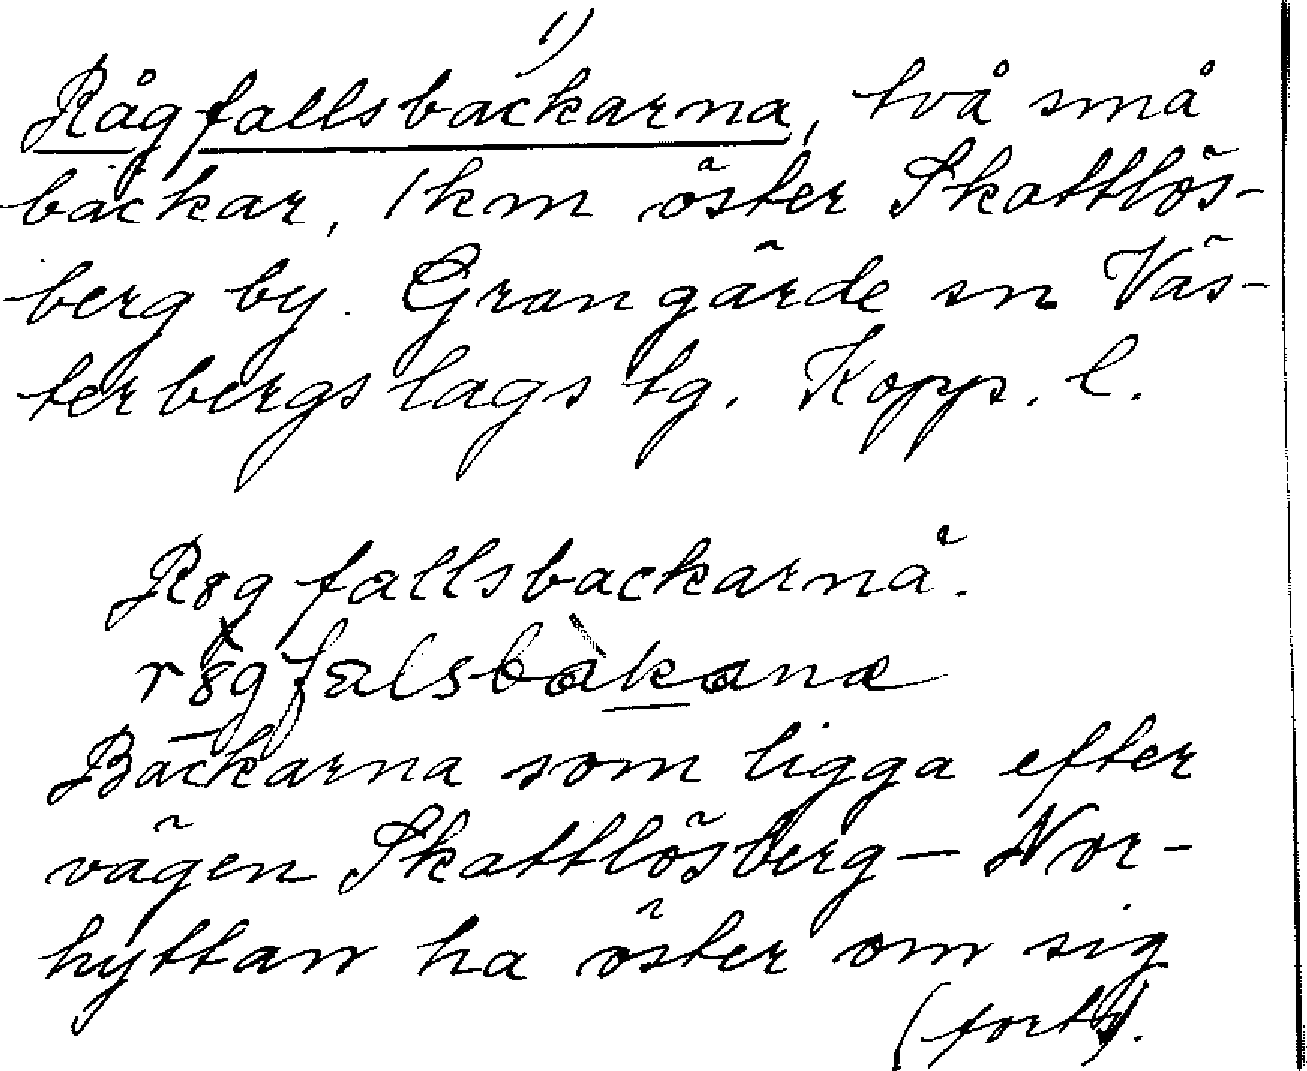 1)
Rågfallsbackarna, två små
backar, 1 km öster Skattlös-
berg by. Grangärde sn Väs-
terbergslags tg. Kopp. l.
Rog fallsbackarnå.
Backarna som ligga efter
vägen Skattlösberg – Nor-
hyttan ha öster om sig
(forts).